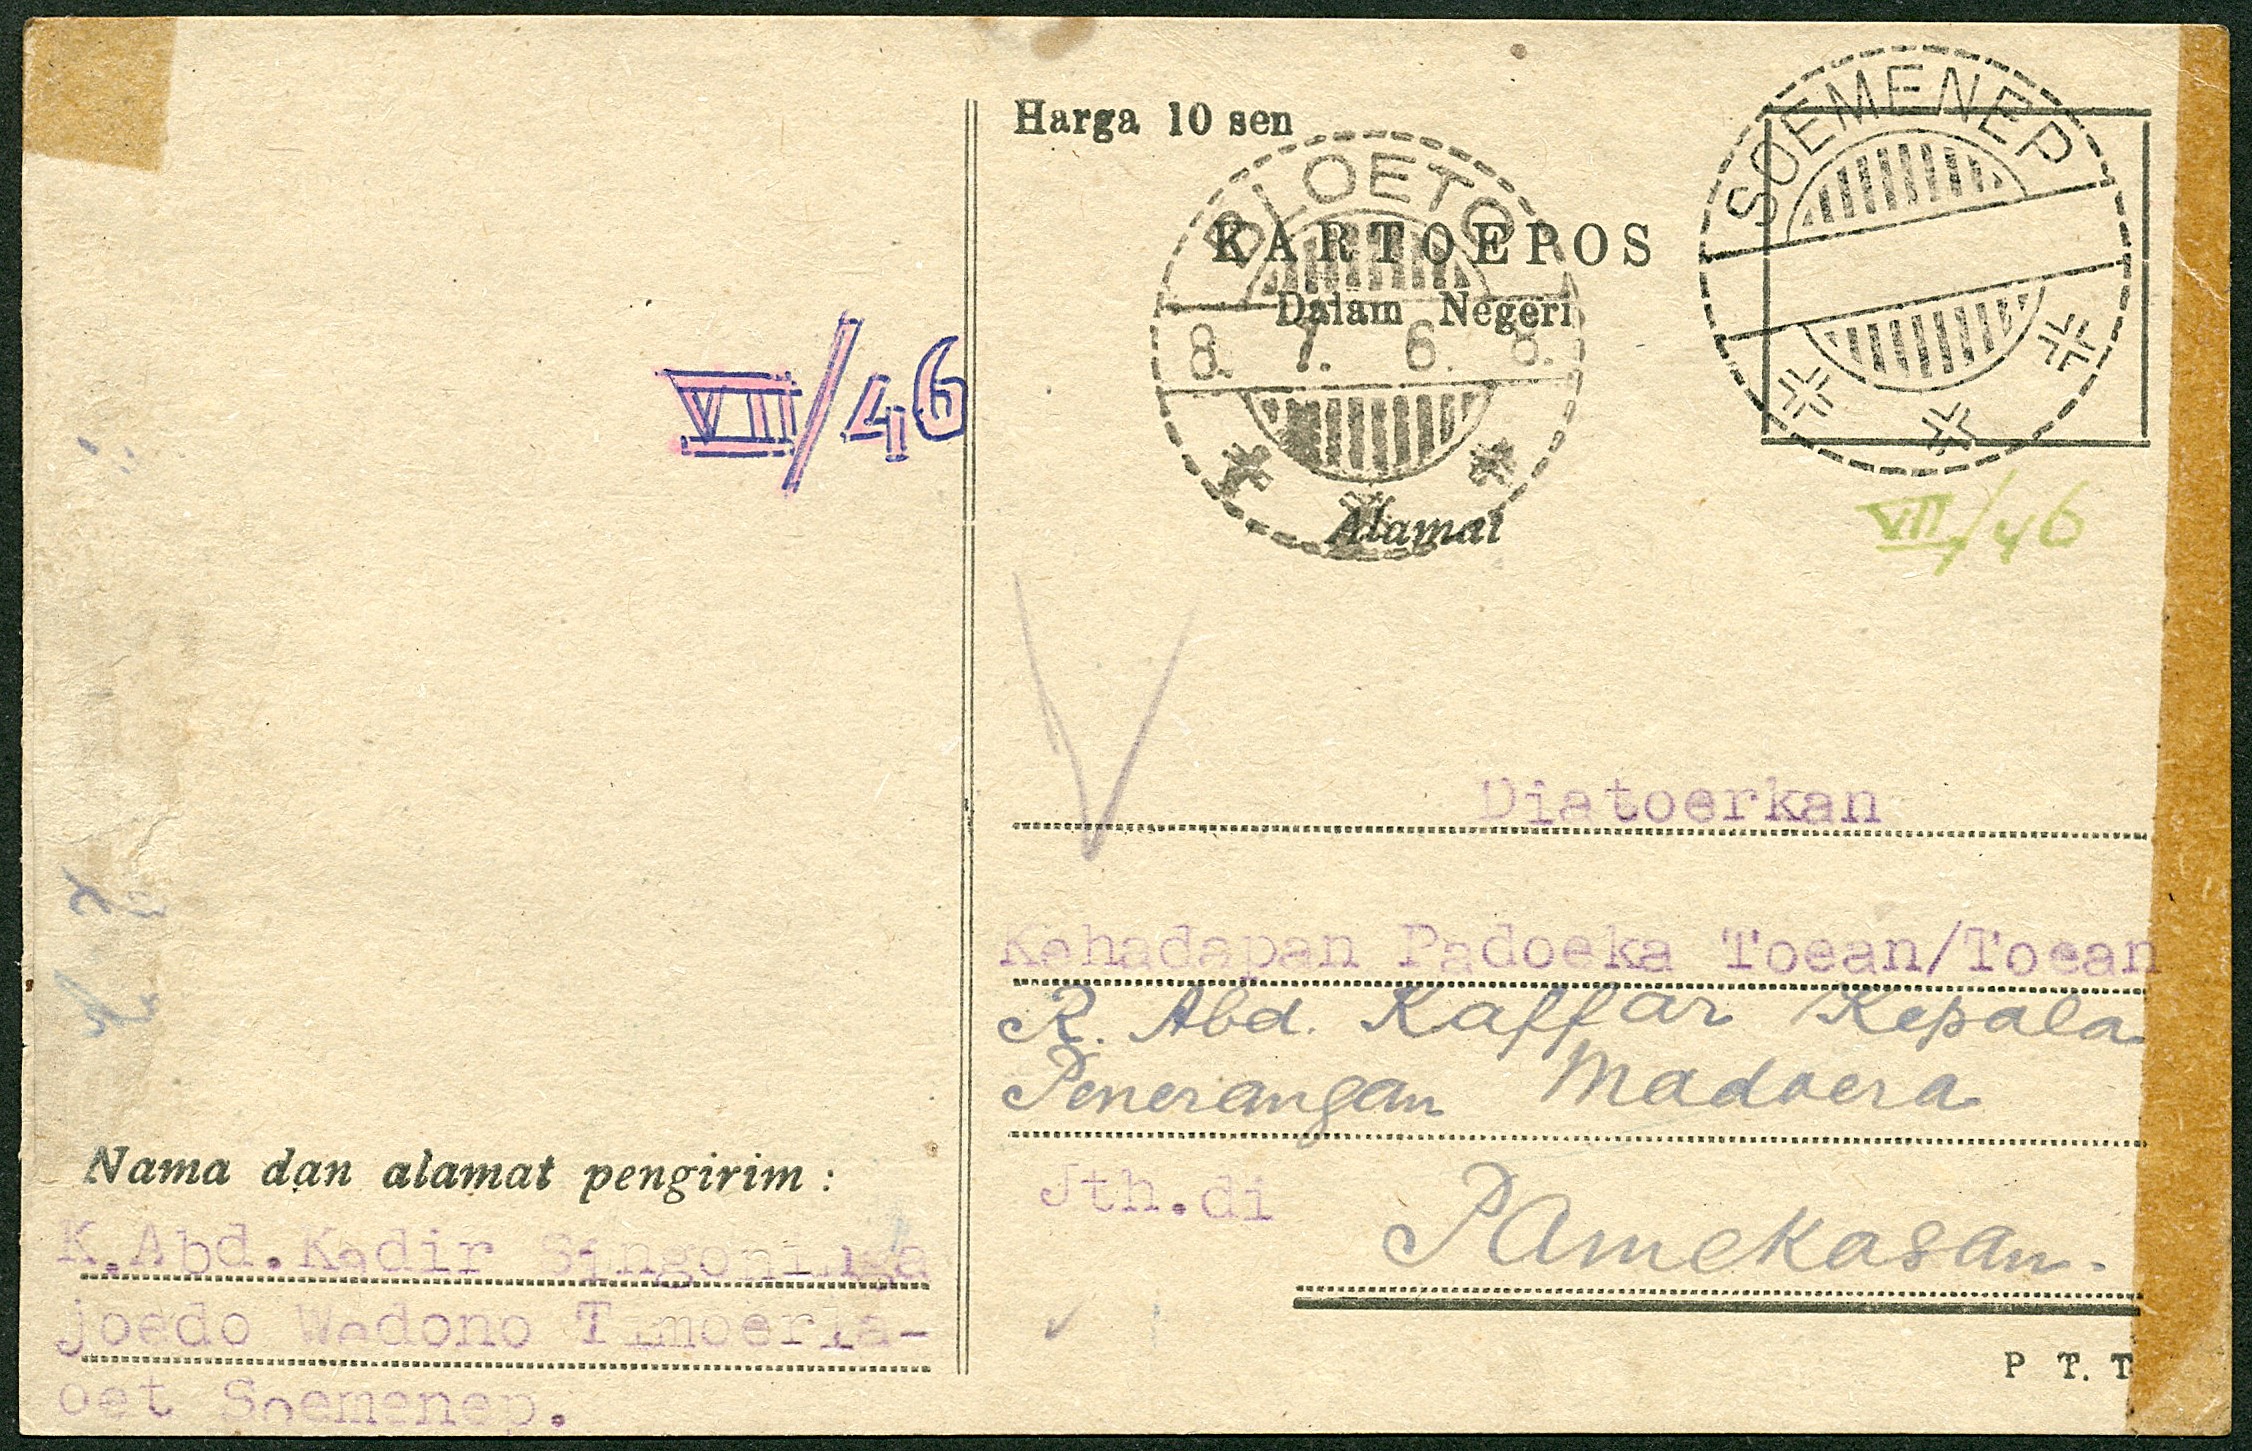 Harga 10 sen
SOEMENEP
BLOETO
KARTOEPOS
Dalam Negeri
8. 7. 6. 8.
VII/46
Alamat
VII/46
Diatoerkan
Kehadapan Padoeka Toean/Toean
R. Abd. Kaffar Kepala
Penerangan Madoera
Jth.di Pamekasan.
Nama dan alamat pengirim :
K.Abd.Kadir
joedo Wedono Timoerla-
oet Soemenep.
P T. T